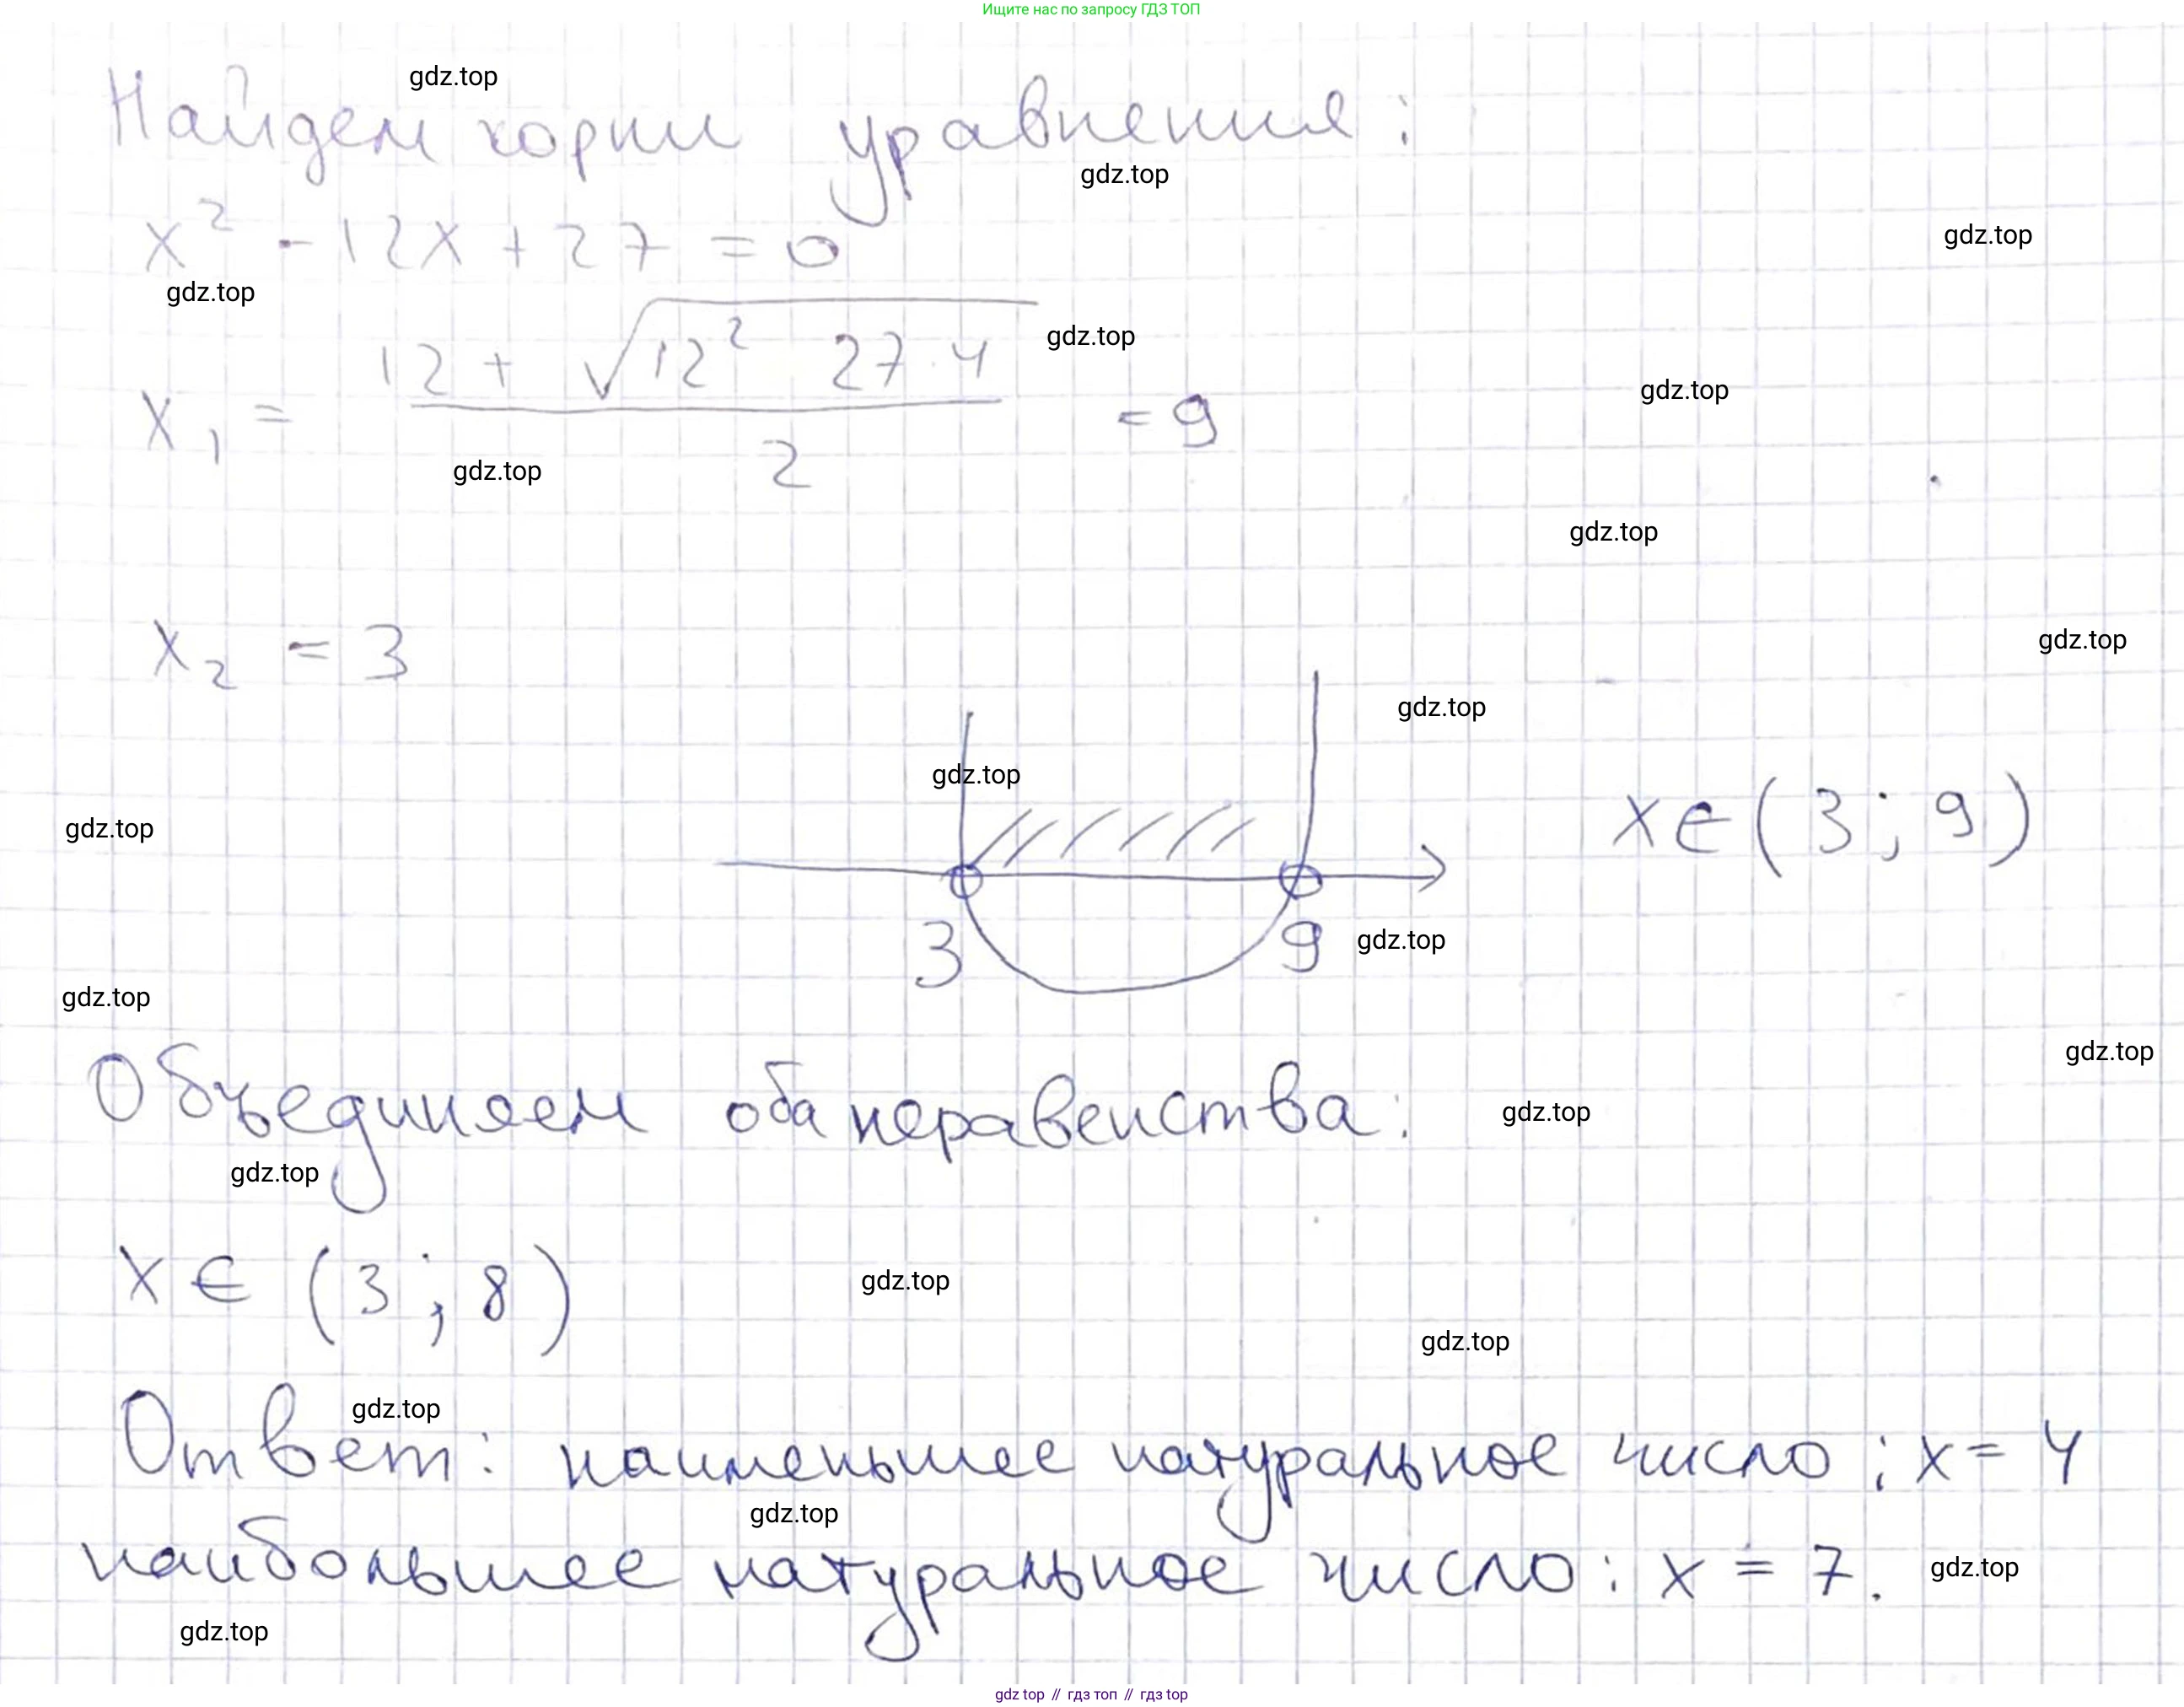 Ищите нас по запросу ГДЗ ТОП
gdz.top
Найдем корни уравнения:
gdz.top
x² - 12x + 27 = 0
gdz.top
gdz.top
x₁ = (12 + √(12² 27·4)) / 2 = 9
gdz.top
gdz.top
gdz.top
gdz.top
x₂ = 3
gdz.top
gdz.top
gdz.top
x ∈ (3; 9)
gdz.top
3 9
gdz.top
gdz.top
gdz.top
Объединяем оба неравенства:
gdz.top
gdz.top
x ∈ (3; 8)
gdz.top
gdz.top
gdz.top
Ответ: наименьшее натуральное число: x = 4
gdz.top
наибольшее натуральное число: x = 7.
gdz.top
gdz.top
gdz top // гдз топ // gdz top